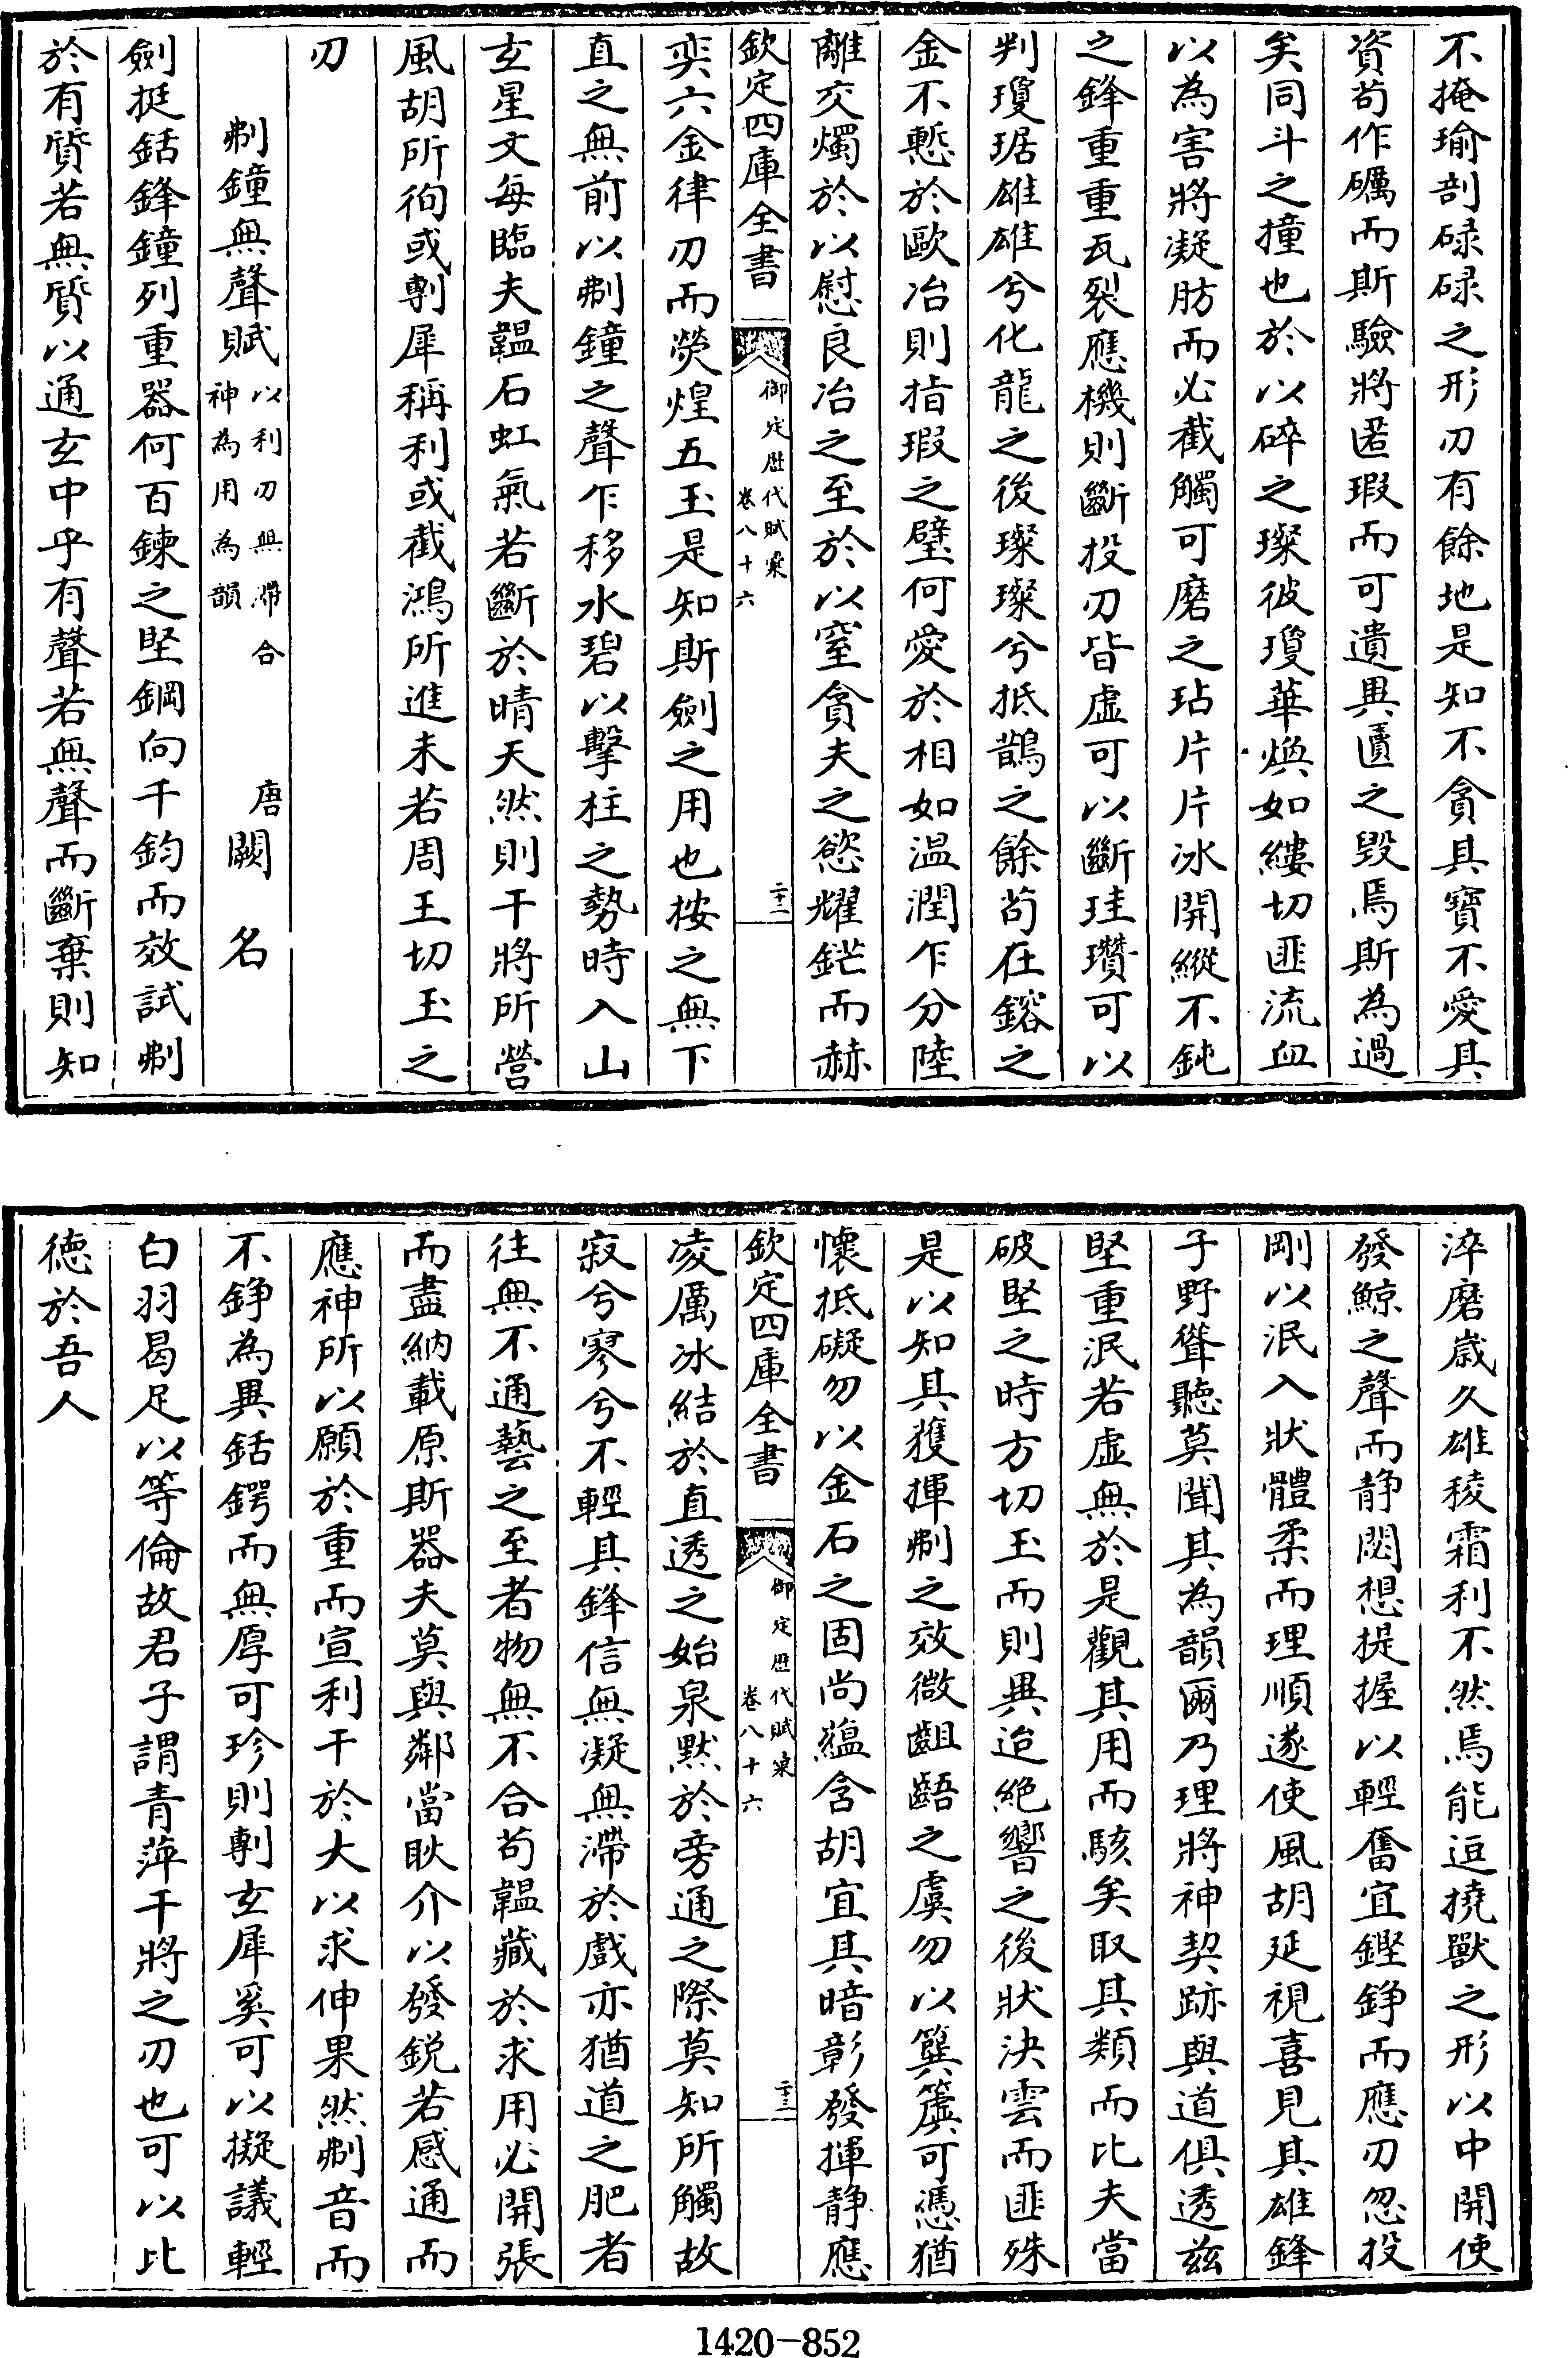 不掩瑜剖碌碌之形刃有餘地是知不貪其寶不愛其
資苟作礪而斯驗將匿瑕而可遺異匵之毀焉斯為過
矣同斗之撞也於以碎之璨彼瓊華煥如縷切匪流血
以為害將凝肪而必截觸可磨之玷片片冰開縱不鈍
之鋒重重瓦裂應機則斷投刃皆虛可以斷珪瓚可以
判瓊琚雄雄兮化龍之後璨璨兮抵鵲之餘苟在鎔之
金不慙於歐冶則指瑕之璧何愛於相如温潤乍分陸
離交燭於以慰良冶之至於以窒貪夫之慾耀鋩而赫
欽定四庫全書
御定歷代賦彙
卷八十六
二十二
奕六金律刃而熒煌五玉是知斯劍之用也按之無下
直之無前以刜鐘之聲乍移水碧以擊柱之勢時入山
玄星文每臨夫韞石虹氣若斷於晴天然則干將所營
風胡所徇或剸犀稱利或截鴻所進未若周王切玉之
刃
刜鐘無聲賦
以利刃無滯合
神為用為韻
唐闕名
劍挺銛鋒鐘列重器何百鍊之堅鋼向千鈞而效試刜
於有質若無質以通玄中乎有聲若無聲而斷棄則知
淬磨歳久雄稜霜利不然焉能逗撓獸之形以中開使
發鯨之聲而静閟想提握以輕奮宜鏗錚而應刃忽投
剛以泯入狀體柔而理順遂使風胡延視喜見其雄鋒
子野聳聽莫聞其為韻爾乃理將神契跡與道俱透茲
堅重泯若虛無於是觀其用而駭矣取其類而比夫當
破堅之時方切玉而則異迨絶響之後狀決雲而匪殊
是以知其獲揮刜之效微齟齬之虞勿以簨簴可憑猶
懷抵礙勿以金石之固尚蘊含胡宜其暗彰發揮静應
欽定四庫全書
御定歷代賦彙
卷八十六
二十三
凌厲冰結於直透之始泉黙於旁通之際莫知所觸故
寂兮寥兮不輕其鋒信無凝無滯於戲亦猶道之肥者
往無不通藝之至者物無不合苟韞藏於求用必開張
而盡納載原斯器夫莫與鄰當耿介以發銳若感通而
應神所以願於重而宣利干於大以求伸果然刜音而
不錚為異銛鍔而無厚可珍則剸玄犀奚可以擬議輕
白羽曷足以等倫故君子謂青萍干將之刃也可以比
德於吾人
1420-852